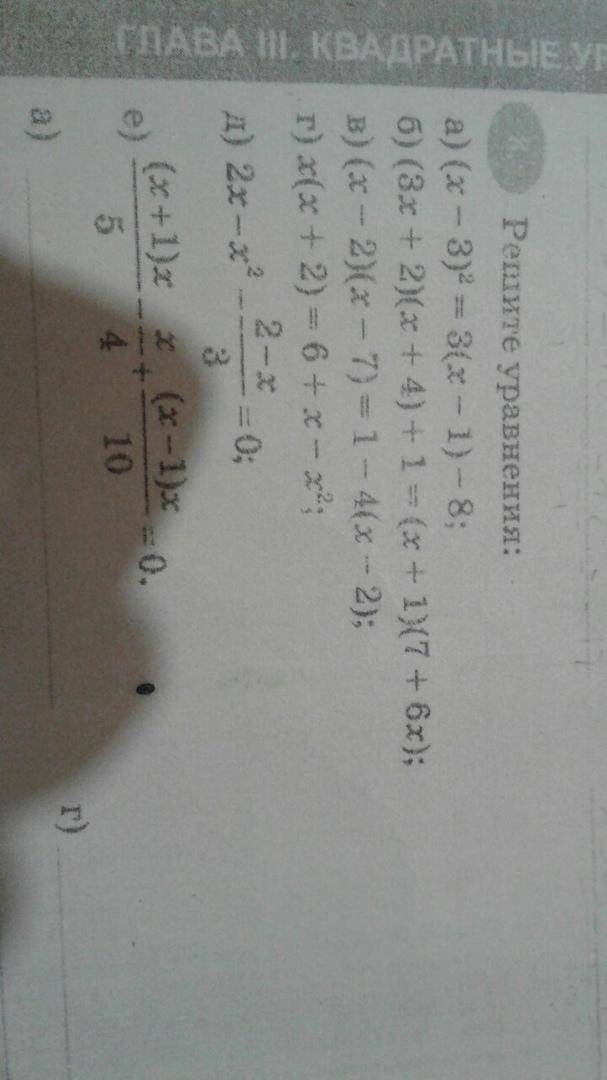 ГЛАВА III. КВАДРАТНЫЕ УР
Решите уравнения:
а) (x − 3)² = 3(x − 1) − 8;
б) (3x + 2)(x + 4) + 1 = (x + 1)(7 + 6x);
в) (x − 2)(x − 7) = 1 − 4(x − 2);
г) x(x + 2) = 6 + x − x²;
д) 2x − x² − (2 − x)/3 = 0;
е) (x+1)x/5 − x/4 + (x−1)x/10 = 0.
а)
г)